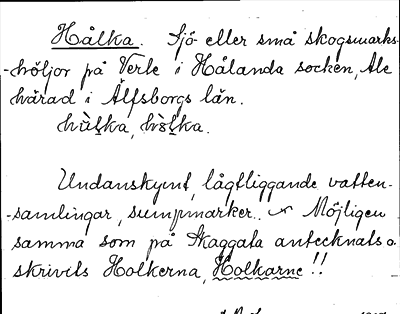 Hålka. Sjö eller små skogsmarks-
-höljor på Verle i Hålanda socken, Ale
härad i Älfsborgs län.
Undanskymt, lågtliggande vatten-
-samlingar, sumpmarker.. Möjligen
samma som på Skaggata antecknats o.
skrivits Holkerna, Holkarne!!